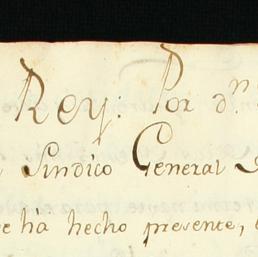 Rey: Por Dn
Sindico General
ha hecho presente,